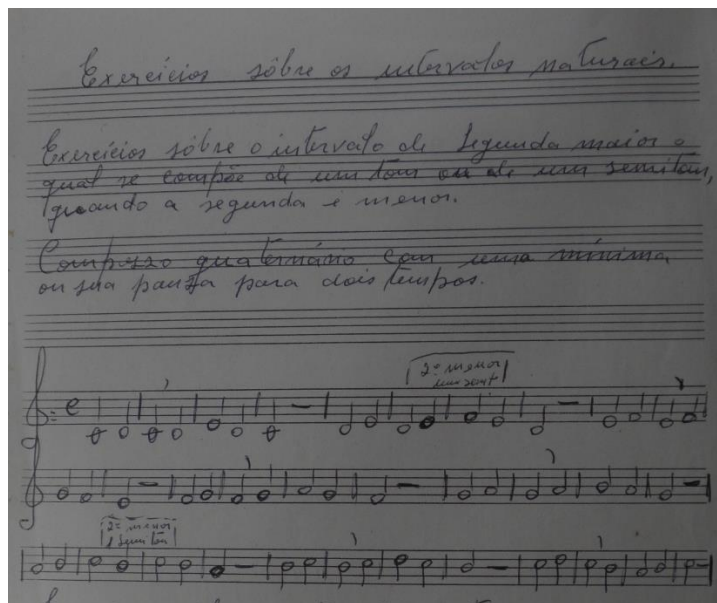 Exercícios sôbre os intervalos naturais.
Exercícios sôbre o intervalo de Segunda maior o
qual se compõe de um tom ou de um semitom,
quando a segunda é menor.
Compasso quaternário com uma mínima
ou sua pausa para dois tempos.
2ª menor
um
2ª menor
1 Semitom